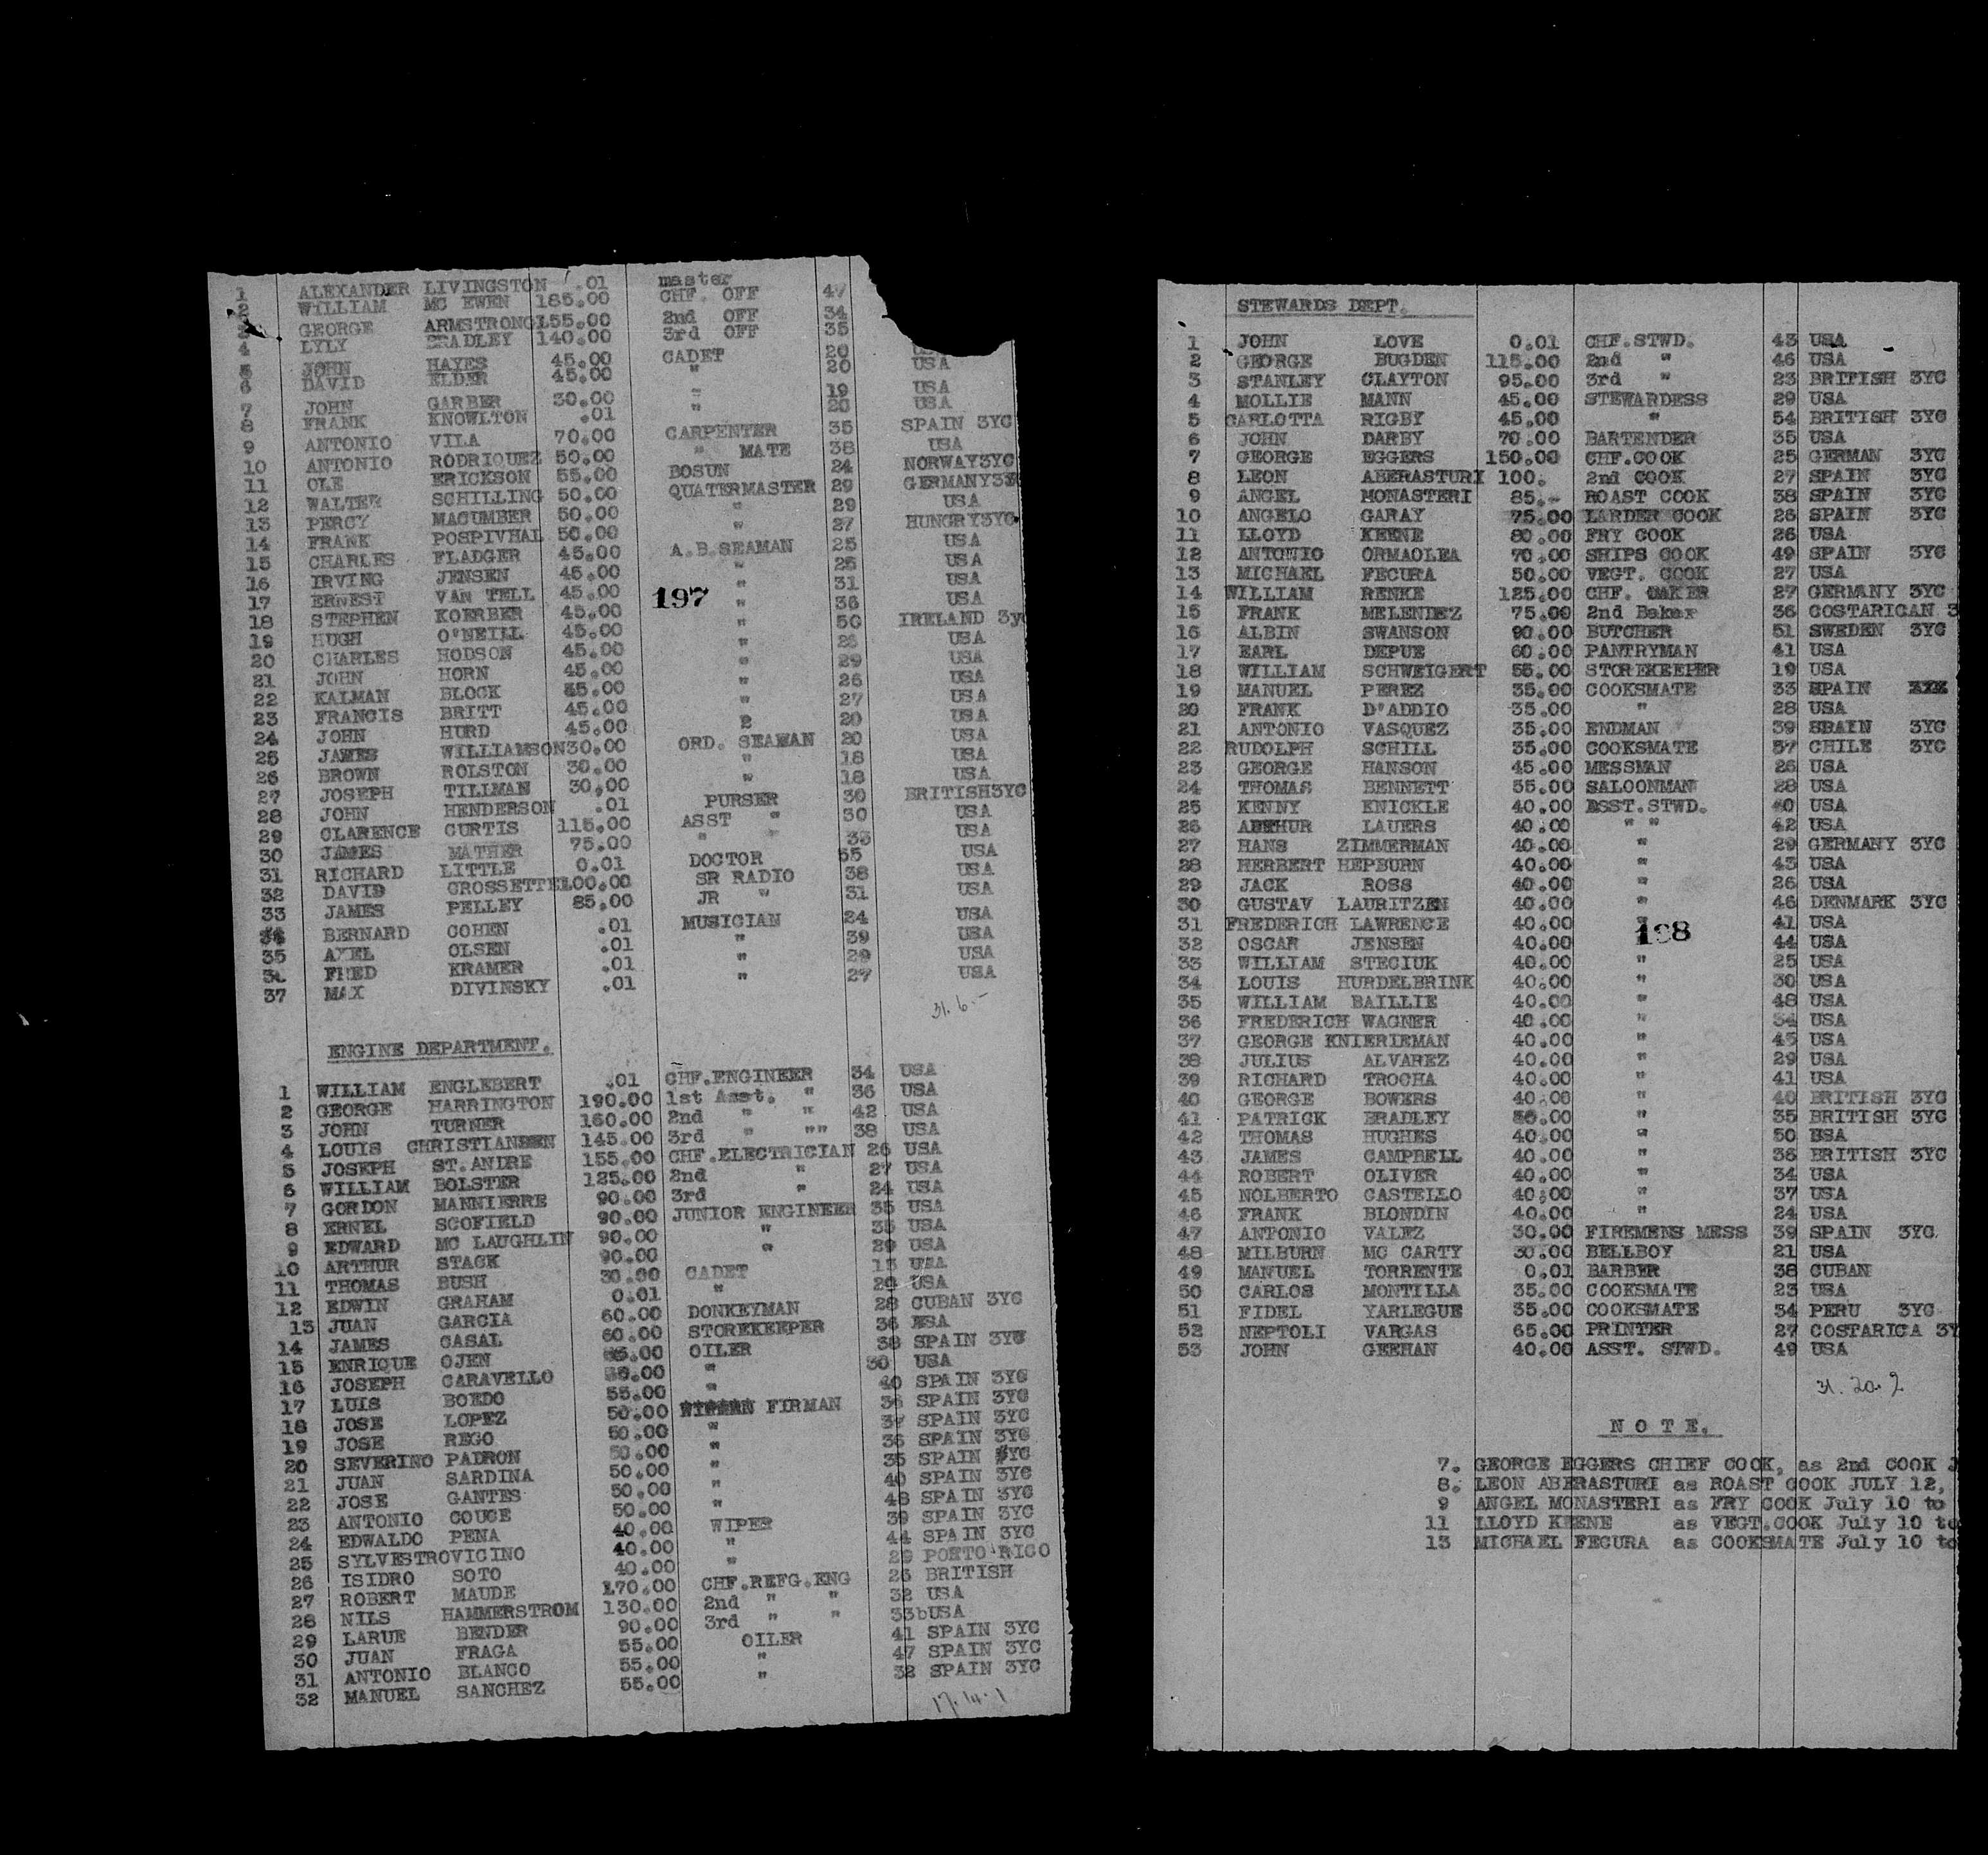 1 ALEXANDER LIVINGSTON .01 master
2 WILLIAM MC EWEN 185.00 CHF. OFF 47
3 GEORGE ARMSTRONG 155.00 2nd OFF 34
4 LYLY BRADLEY 140.00 3rd OFF 35
5 JOHN HAYES 45.00 CADET 20
6 DAVID ELDER 45.00 " 20 USA
7 JOHN GARBER 30.00 " 19 USA
8 FRANK KNOWLTON .01 " 20 USA
9 ANTONIO VILA 70.00 CARPENTER 35 SPAIN 3YC
10 ANTONIO RODRIQUEZ 50.00 " MATE 38 USA
11 OLE ERICKSON 55.00 BOSUN 24 NORWAY3YC
12 WALTER SCHILLING 50.00 QUATERMASTER 29 GERMANY3YC
13 PERCY MACUMBER 50.00 " 29 USA
14 FRANK POSPIVHAL 50.00 " 27 HUNGRY3YC
15 CHARLES FLADGER 45.00 A.B.SEAMAN 25 USA
16 IRVING JENSEN 45.00 " 25 USA
17 ERNEST VAN TELL 45.00 " 31 USA
197
18 STEPHEN KOERBER 45.00 " 36 USA
19 HUGH O'NEILL 45.00 " 50 IRELAND 3yc
20 CHARLES HODSON 45.00 " 28 USA
21 JOHN HORN 45.00 " 29 USA
22 KALMAN BLOCK 45.00 " 26 USA
23 FRANCIS BRITT 45.00 " 27 USA
24 JOHN HURD 45.00 " 20 USA
25 JAMES WILLIAMSON 30.00 ORD. SEAMAN 20 USA
26 BROWN ROLSTON 30.00 " 18 USA
27 JOSEPH TILLMAN 30.00 " 18 USA
28 JOHN HENDERSON .01 PURSER 30 BRITISH3YC
29 CLARENCE CURTIS 115.00 ASST " 30 USA
30 JAMES MATHER 75.00 " " 33 USA
31 RICHARD LITTLE 0.01 DOCTOR 55 USA
32 DAVID CROSSETTE 100.00 SR RADIO 38 USA
33 JAMES PELLEY 85.00 JR " 31 USA
34 BERNARD COHEN .01 MUSICIAN 24 USA
35 AXEL OLSEN .01 " 39 USA
36 FRED KRAMER .01 " 29 USA
37 MAX DIVINSKY .01 " 27 USA
31.6.-
ENGINE DEPARTMENT.
1 WILLIAM ENGLEBERT .01 CHF.ENGINEER 34 USA
2 GEORGE HARRINGTON 190.00 1st Asst. " 36 USA
3 JOHN TURNER 160.00 2nd " " 42 USA
4 LOUIS CHRISTIANSEN 145.00 3rd " "" 38 USA
5 JOSEPH ST.ANDRE 155.00 CHF.ELECTRICIAN 26 USA
6 WILLIAM BOLSTER 125.00 2nd " 27 USA
7 GORDON MANNIERRE 90.00 3rd " 24 USA
8 ERNEL SCOFIELD 90.00 JUNIOR ENGINEER 35 USA
9 EDWARD MC LAUGHLIN 90.00 " 35 USA
10 ARTHUR STACK 90.00 " 29 USA
11 THOMAS BUSH 30.00 CADET USA
12 EDWIN GRAHAM 0.01 " USA
13 JUAN GARCIA 60.00 DONKEYMAN 28 CUBAN 3YC
14 JAMES CASAL 60.00 STOREKEEPER 36 USA
15 ENRIQUE OJEN OILER 38 SPAIN 3YC
16 JOSEPH CARAVELLO " 30 USA
17 LUIS BOEDO 55.00 " 40 SPAIN 3YC
18 JOSE LOPEZ 50.00 FIRMAN 36 SPAIN 3YC
19 JOSE REGO 50.00 " SPAIN 3YC
20 SEVERINO PADRON 50.00 " 36 SPAIN 3YC
21 JUAN SARDINA 50.00 " 35 SPAIN 3YC
22 JOSE GANTES 50.00 " 40 SPAIN 3YC
23 ANTONIO COUCE 50.00 " 48 SPAIN 3YC
24 EDWALDO PENA 40.00 WIPER 39 SPAIN 3YC
25 SYLVESTROVICINO 40.00 " 44 SPAIN 3YC
26 ISIDRO SOTO 40.00 " 29 PORTO RICO
27 ROBERT MAUDE 170.00 CHF.REFG.ENG 25 BRITISH
28 NILS HAMMERSTROM 130.00 2nd " " 32 USA
29 LARUE BENDER 90.00 3rd " " 33bUSA
30 JUAN FRAGA 55.00 OILER 41 SPAIN 3YC
31 ANTONIO BLANCO 55.00 " 47 SPAIN 3YC
32 MANUEL SANCHEZ 55.00 " 32 SPAIN 3YC
17.14.1
STEWARDS DEPT.
1 JOHN LOVE 0.01 CHF.STWD. 43 USA
2 GEORGE BUGDEN 115.00 2nd " 46 USA
3 STANLEY CLAYTON 95.00 3rd " 23 BRITISH 3YC
4 MOLLIE MANN 45.00 STEWARDESS 29 USA
5 CARLOTTA RIGBY 45.00 " 54 BRITISH 3YC
6 JOHN DARBY 70.00 BARTENDER 35 USA
7 GEORGE EGGERS 150.00 CHF.COOK 25 GERMAN 3YC
8 LEON ABERASTURI 100. 2nd COOK 27 SPAIN 3YC
9 ANGEL MONASTERI 85.- ROAST COOK 38 SPAIN 3YC
10 ANGELO GARAY 75.00 LARDER COOK 26 SPAIN 3YC
11 LLOYD KEENE 80.00 FRY COOK 26 USA
12 ANTONIO ORMAOLEA 70.00 SHIPS COOK 49 SPAIN 3YC
13 MICHAEL FECURA 50.00 VEGT. COOK 27 USA
14 WILLIAM RENKE 125.00 CHF. BAKER 27 GERMANY 3YC
15 FRANK MELENIEZ 75.00 2nd Baker 36 COSTARICAN 3
16 ALBIN SWANSON 90.00 BUTCHER 51 SWEDEN 3YC
17 EARL DEPUE 60.00 PANTRYMAN 41 USA
18 WILLIAM SCHWEIGERT 55.00 STOREKEEPER 19 USA
19 MANUEL PEREZ 35.00 COOKSMATE 33 SPAIN
20 FRANK D'ADDIO 35.00 " 28 USA
21 ANTONIO VASQUEZ 35.00 ENDMAN 39 SPAIN 3YC
22 RUDOLPH SCHILL 35.00 COOKSMATE 37 CHILE 3YC
23 GEORGE HANSON 45.00 MESSMAN 26 USA
24 THOMAS BENNETT 55.00 SALOONMAN 28 USA
25 KENNY KNICKLE 40.00 ASST.STWD. 40 USA
26 ARTHUR LAUERS 40.00 " " 42 USA
27 HANS ZIMMERMAN 40.00 " 29 GERMANY 3YC
28 HERBERT HEPBURN 40.00 " 43 USA
29 JACK ROSS 40.00 " 26 USA
30 GUSTAV LAURITZEN 40.00 " 46 DENMARK 3YC
31 FREDERICH LAWRENCE 40.00 " 41 USA
198
32 OSCAR JENSEN 40.00 44 USA
33 WILLIAM STECIUK 40.00 " 25 USA
34 LOUIS HURDELBRINK 40.00 " 30 USA
35 WILLIAM BAILLIE 40.00 " 48 USA
36 FREDERICH WAGNER 40.00 " 34 USA
37 GEORGE KNIERIEMAN 40.00 " 45 USA
38 JULIUS ALVAREZ 40.00 " 29 USA
39 RICHARD TROCHA 40.00 " 41 USA
40 GEORGE BOWERS 40.00 " 40 BRITISH 3YC
41 PATRICK BRADLEY " 35 BRITISH 3YC
42 THOMAS HUGHES 40.00 " 50 USA
43 JAMES CAMPBELL 40.00 " 36 BRITISH 3YC
44 ROBERT OLIVER 40.00 " 34 USA
45 NOLBERTO CASTELLO 40.00 " 37 USA
46 FRANK BLONDIN 40.00 " 24 USA
47 ANTONIO VALEZ 30.00 FIREMENS MESS 39 SPAIN 3YC.
48 MILBURN MC CARTY 30.00 BELLBOY 21 USA
49 MANUEL TORRENTE 0.01 BARBER 38 CUBAN
50 CARLOS MONTILLA 35.00 COOKSMATE 23 USA
51 FIDEL YARLEGUE 35.00 COOKSMATE 34 PERU 3YC
52 NEPTOLI VARGAS 65.00 PRINTER 27 COSTARICA 3Y
53 JOHN GEEHAN 40.00 ASST. STWD. 49 USA
31.20.2
N O T E.
7. GEORGE EGGERS CHIEF COOK, as 2nd COOK J
8. LEON ABERASTURI as ROAST COOK JULY 12,
9 ANGEL MONASTERI as FRY COOK July 10 to
11 LLOYD KEENE as VEGT.COOK July 10 to
13 MICHAEL FECURA as COOKSMATE July 10 to